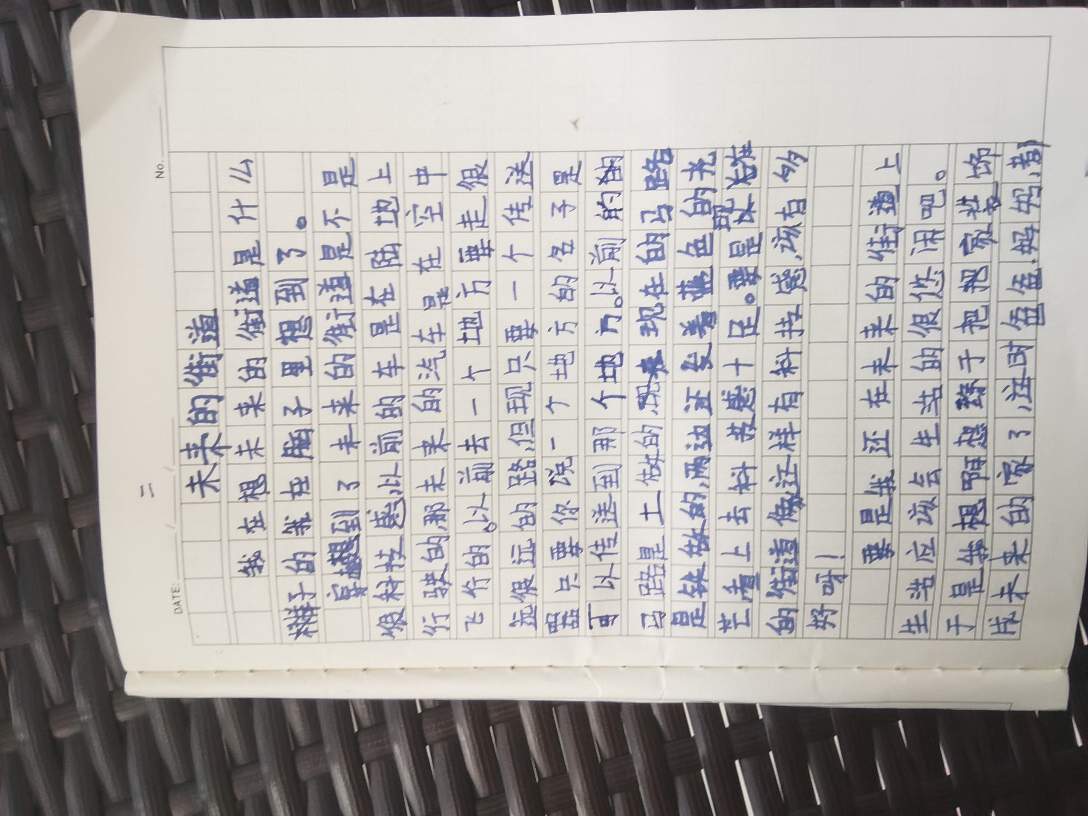 No.
DATE:
二
未来的街道
我在想未来的街道是什么
样子的我在脑子里想到了。
想到了未来的街道是不是
很科技感,以前的车是在陆地上
行驶的那未来的汽车是在空中
飞行的。以前去一个地方要走很
远很远的路,但现只要一个传送
器只要你说一个地方的名子是
可以传送到那个地方。以前的
马路是土做的,现在的马路
是铁做的,两边还发着蓝色的光
芒,上去科技感十足。要是
的街道像这样有科技感,该有多
好呀!
要是我还在未来的街道上
生活应该会生活的很悠闲吧。
于是我想啊想终于把把家装饰
成未来的家了,这时爸爸、妈妈,都